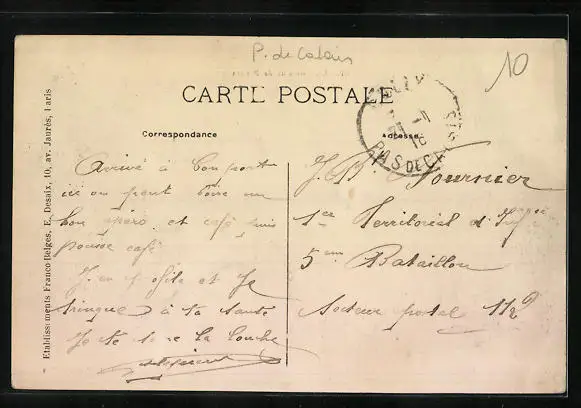 P. de Calais
10
CARTE POSTALE
Correspondance
Adresse
PAS DE CALAIS
Etablissements Franco-Belges. E. Desaix, 10, av. Jaurès, Paris
Arrivé à bon port
ici on peut boire un
bon apéro et café puis
pousse café
J'en profite et Je
trinque à ta santé
Je te serre la louche
J. B. Fournier
1er Territorial d'Inf
5em Bataillon
Secteur postal 112